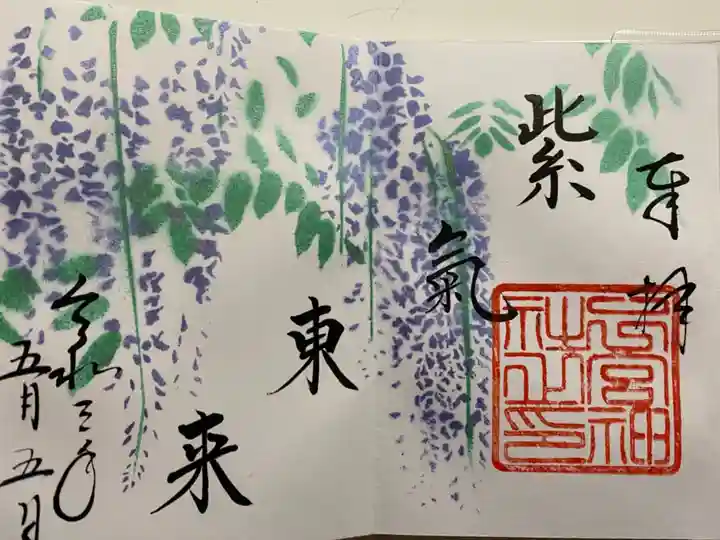 奉拝
紫氣東来
令和三年
五月五日
宮神
社之印